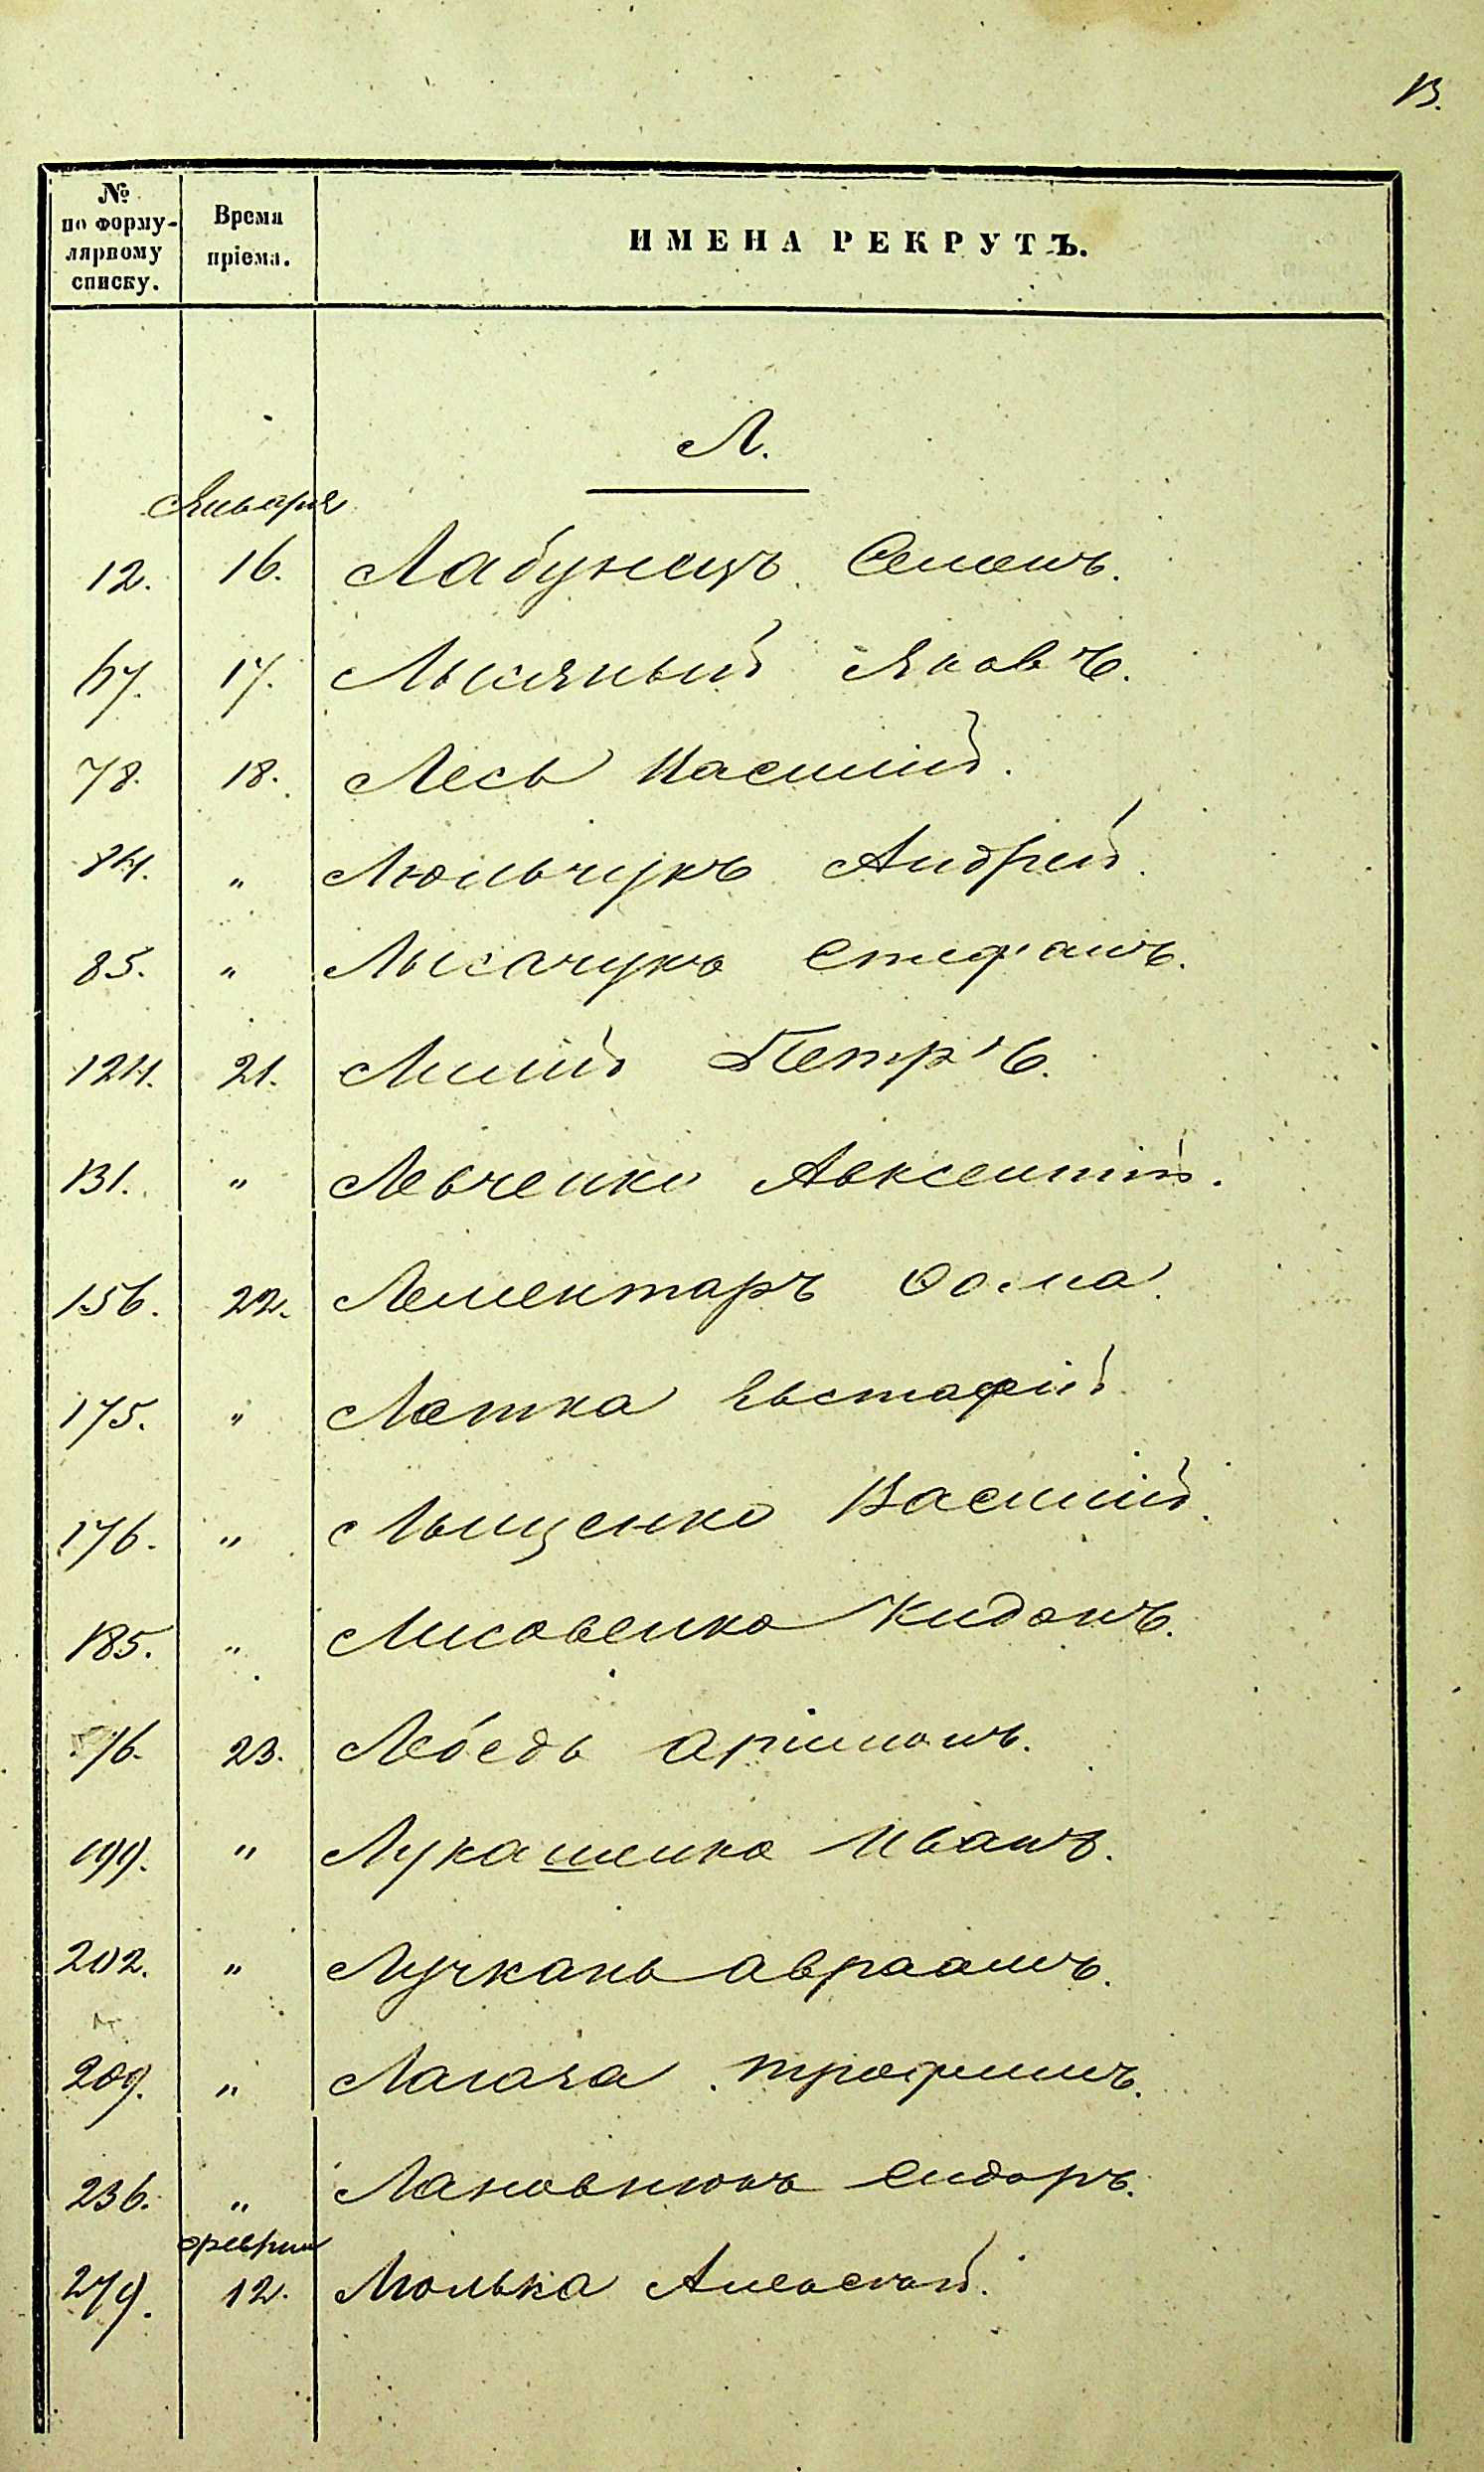 13.
№ по форму-лярному списку. Время пріема. ИМЕНА РЕКРУТЪ.
Л.
Января
12. 16. Лабунецъ Семенъ.
67. 17. Лысяный Яковъ.
78. 18. Лесь Василій.
84. " Люльчукъ Андрей.
85. " Лысачукъ Стефанъ.
124. 21. Линій Петръ.
131. " Левченко Авксентій.
156. 22. Лементаръ Ѳома.
175. " Латка Евстафій.
176. " Лыщенко Василій.
185. " Лисовенко Киданъ.
23. Лебедь
199. " Лукашенко Иванъ.
202. " Лучкань Авраамъ.
209. " Лагоза Трофимъ.
236. " Лановнюкъ Сидоръ.
Февраля
279. 12. Люлька Алексѣй.